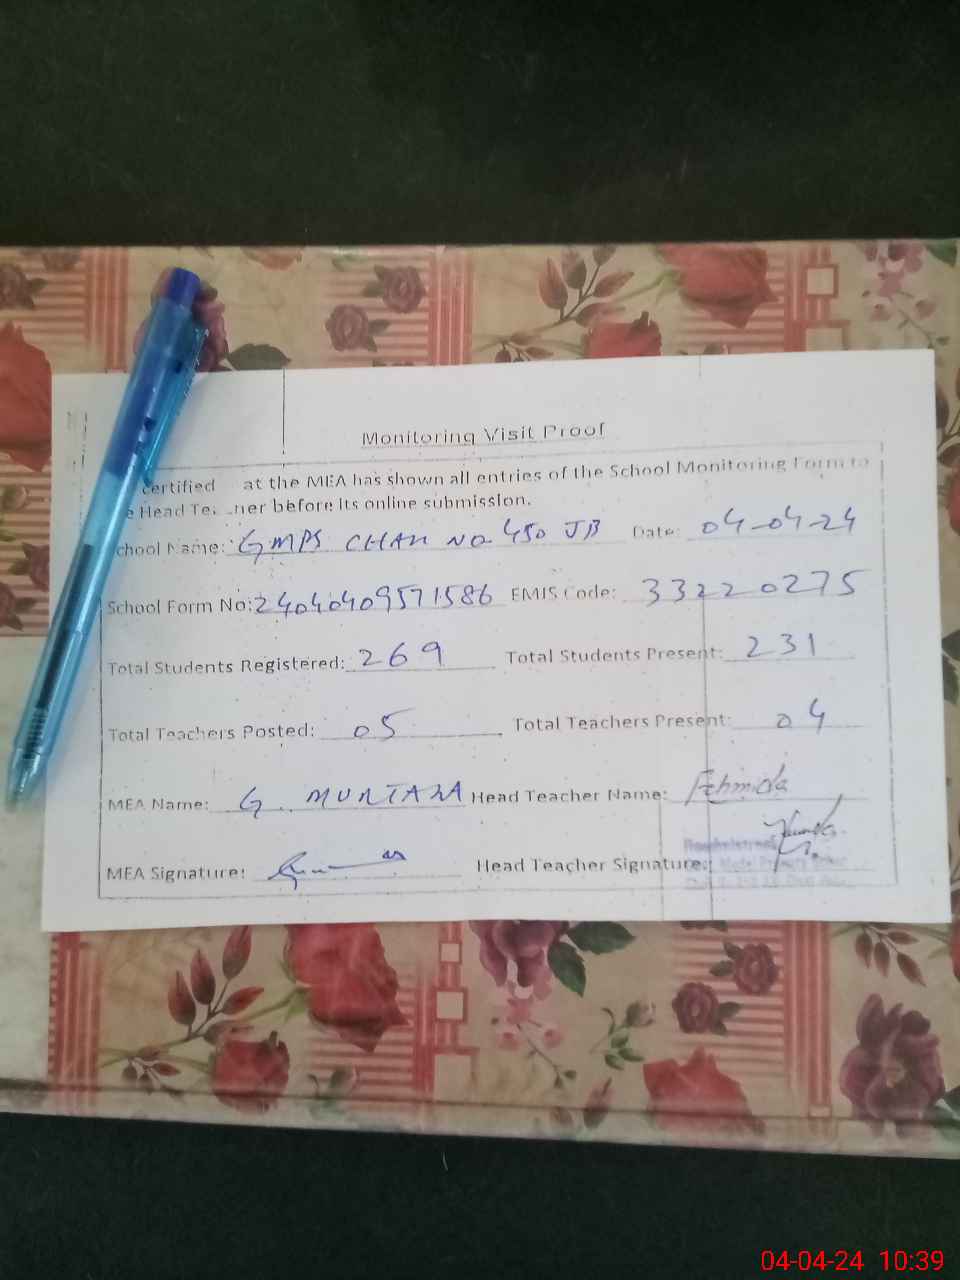 Monitoring Visit Proof
certified at the MEA has shown all entries of the School Monitoring Form to
Head before its online submission.
School Name: GMPS CHAK NO 450 JB Date: 04-04-24
School Form No: 24040409571586 EMIS Code: 33220275
Total Students Registered: 269 Total Students Present: 231
Total Teachers Posted: 05 Total Teachers Present: 04
MEA Name: G. MURTAZA Head Teacher Name: Fehmida
MEA Signature: Head Teacher Signature:
04-04-24 10:39